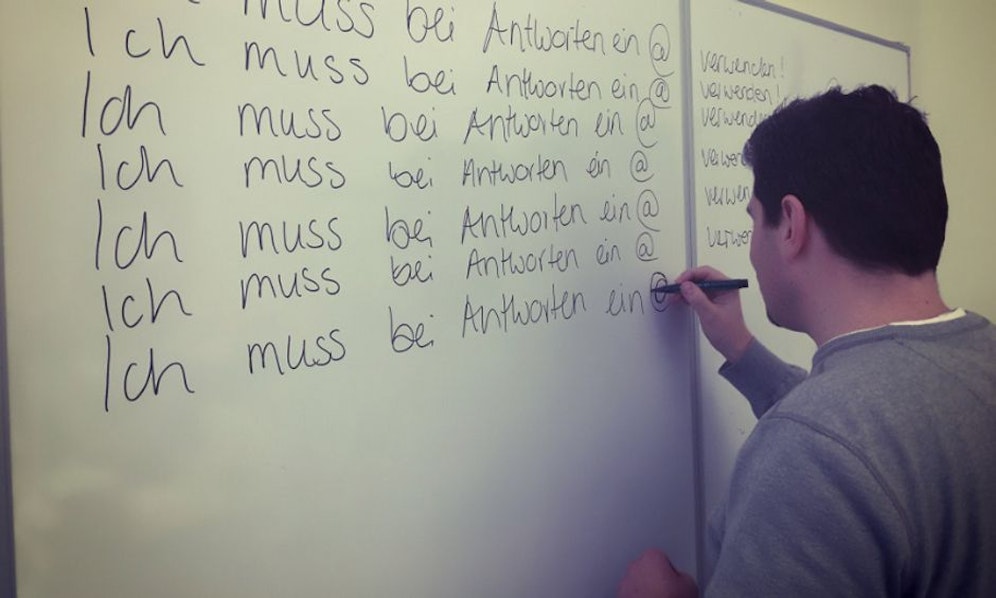 muss bei Antworten ein @ verwenden!
Ich muss bei Antworten ein @ verwenden!
Ich muss bei Antworten ein @ verwende
Ich muss bei Antworten ein @ verwen
Ich muss bei Antworten ein @ verwen
Ich muss bei Antworten ein @ verwen
Ich muss bei Antworten ein @